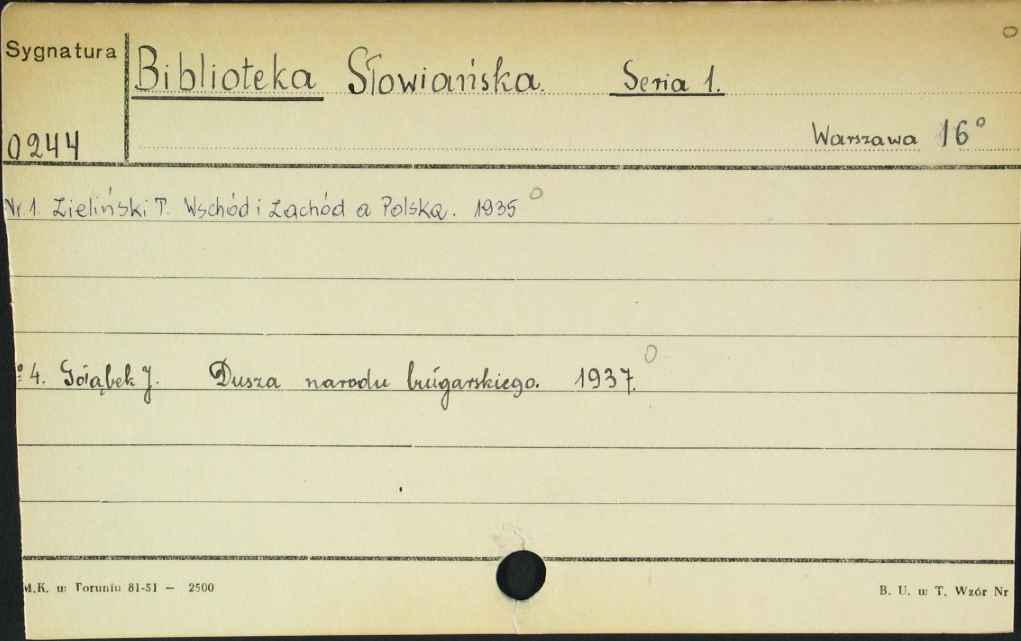 Sygnatura
Biblioteka Słowiańska. Seria 1.
0244
Warszawa 16°
Nr 1. Zieliński T. Wschód i Zachód a Polska. 1935
№ 4. Gołąbek J. Dusza narodu bułgarskiego. 1937.
M.K. w Toruniu 81-51 — 2500
B. U. w T. Wzór Nr